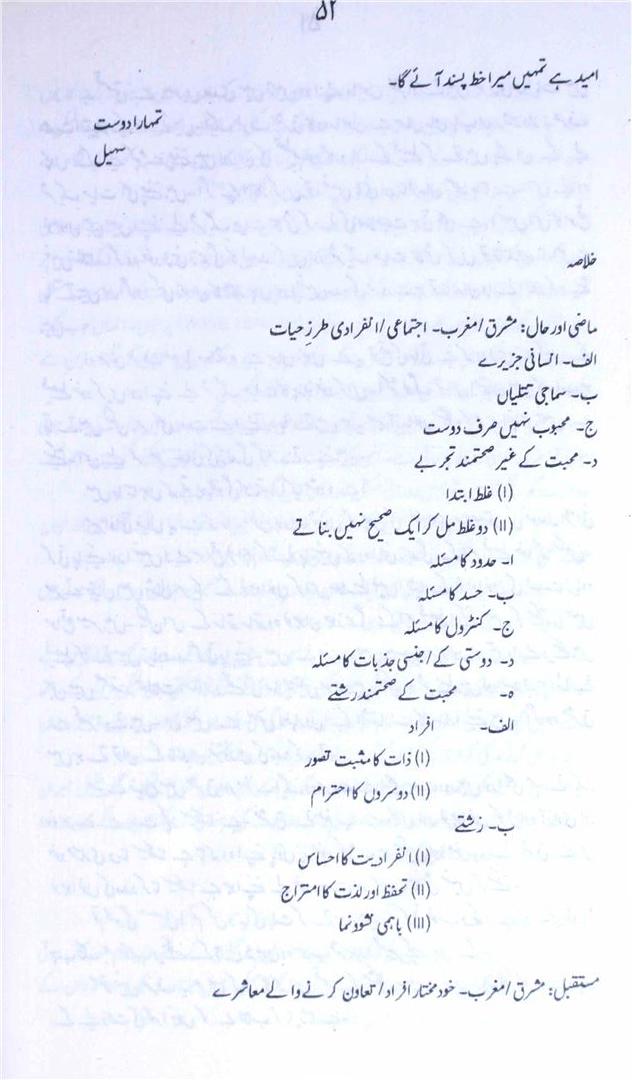 ۵۲
امید ہے تمہیں میرا خط پسند آئے گا۔
تمہارا دوست
سہیل
خلاصہ
ماضی اور حال: مشرق/مغرب۔ اجتماعی/انفرادی طرزِ حیات
الف۔ انسانی جزیرے
ب۔ سماجی تتلیاں
ج۔ محبوب نہیں صرف دوست
د۔ محبت کے غیر صحتمند تجربے
(I) غلط ابتدا
(II) دو غلط مل کر ایک صحیح نہیں بناتے
ا۔ حدود کا مسئلہ
ب۔ حسد کا مسئلہ
ج۔ کنٹرول کا مسئلہ
د۔ دوستی کے/جنسی جذبات کا مسئلہ
ہ۔ محبت کے صحتمند رشتے
الف۔ افراد
(I) ذات کا مثبت تصور
(II) دوسروں کا احترام
ب۔ رشتے
(I) انفرادیت کا احساس
(II) تحفظ اور لذت کا امتزاج
(III) باہمی نشوونما
مستقبل: مشرق/مغرب۔ خود مختار افراد/تعاون کرنے والے معاشرے